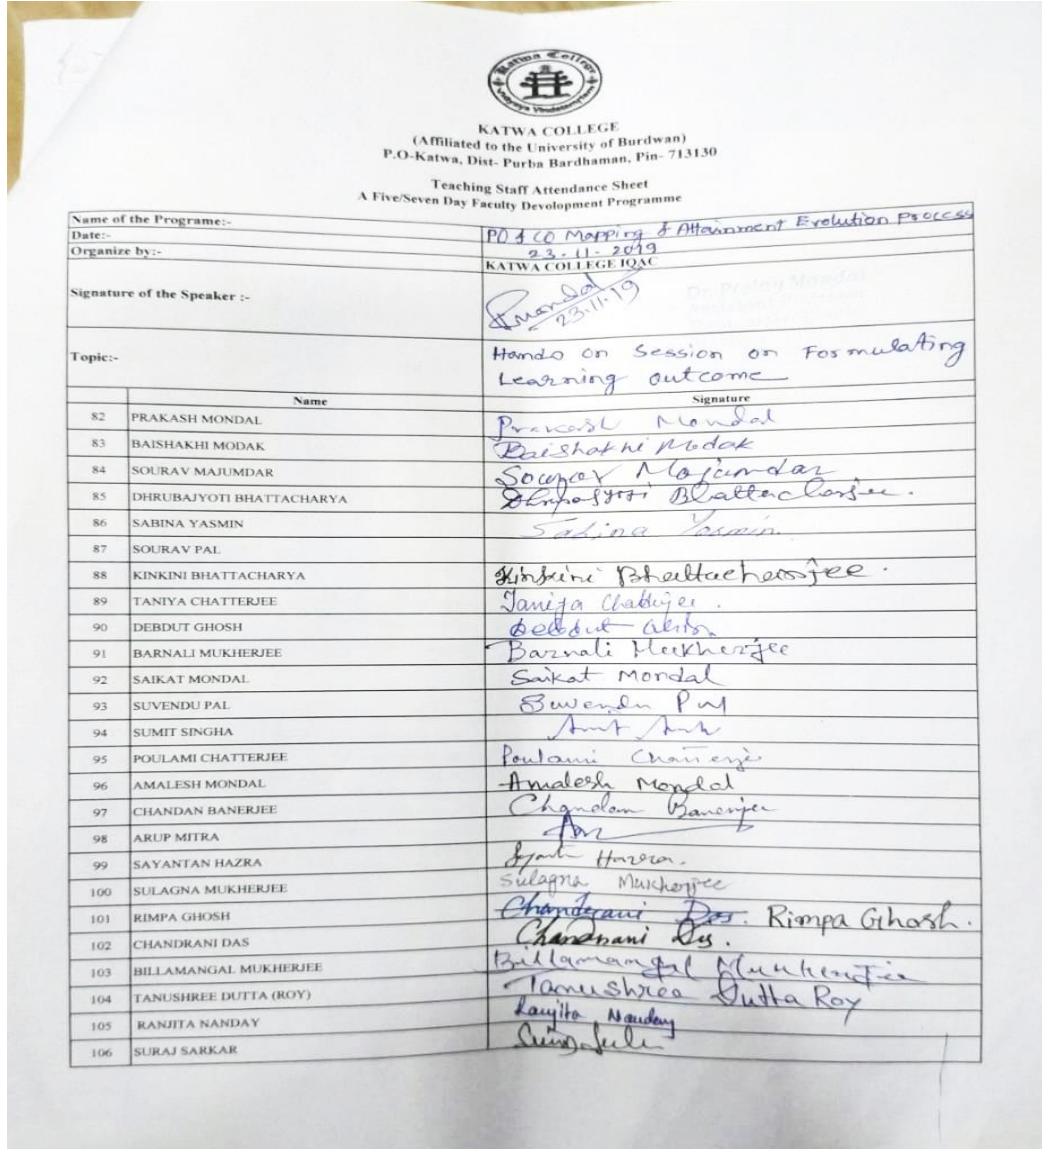 Katwa College
Vidyaya Vindatemrtam
KATWA COLLEGE
(Affiliated to the University of Burdwan)
P.O-Katwa, Dist- Purba Bardhaman, Pin- 713130
Teaching Staff Attendance Sheet
A Five/Seven Day Faculty Devolopment Programme
Name of the Programe:- PO & CO Mapping & Attainment Evolution Process
Date:- 23-11-2019
Organize by:- KATWA COLLEGE IQAC
Signature of the Speaker :- Pmondal 23.11.19
Dr. Prolay Mondal
Topic:- Hands on Session on Formulating
Learning outcome
Name Signature
82 PRAKASH MONDAL Prakash Mondal
83 BAISHAKHI MODAK Baishakhi Modak
84 SOURAV MAJUMDAR Sourav Majumdar
85 DHRUBAJYOTI BHATTACHARYA Bhattacharjee.
86 SABINA YASMIN Sabina Yasmin.
87 SOURAV PAL
88 KINKINI BHATTACHARYA Kinkini Bhattacharjee.
89 TANIYA CHATTERJEE Taniya Chatterjee.
90 DEBDUT GHOSH Debdut Ghosh
91 BARNALI MUKHERJEE Barnali Mukherjee
92 SAIKAT MONDAL Saikat Mondal
93 SUVENDU PAL Suvendu Pal
94 SUMIT SINGHA
95 POULAMI CHATTERJEE Poulami Chatterjee
96 AMALESH MONDAL Amalesh Mondal
97 CHANDAN BANERJEE Chandan Banerjee
98 ARUP MITRA
99 SAYANTAN HAZRA Hazra.
100 SULAGNA MUKHERJEE Sulagna Mukherjee
101 RIMPA GHOSH Chandrani Das. Rimpa Ghosh.
102 CHANDRANI DAS Chandrani Das.
103 BILLAMANGAL MUKHERJEE Billamangal Mukherjee
104 TANUSHREE DUTTA (ROY) Tanushree Dutta Roy
105 RANJITA NANDAY Ranjita Nanday
106 SURAJ SARKAR